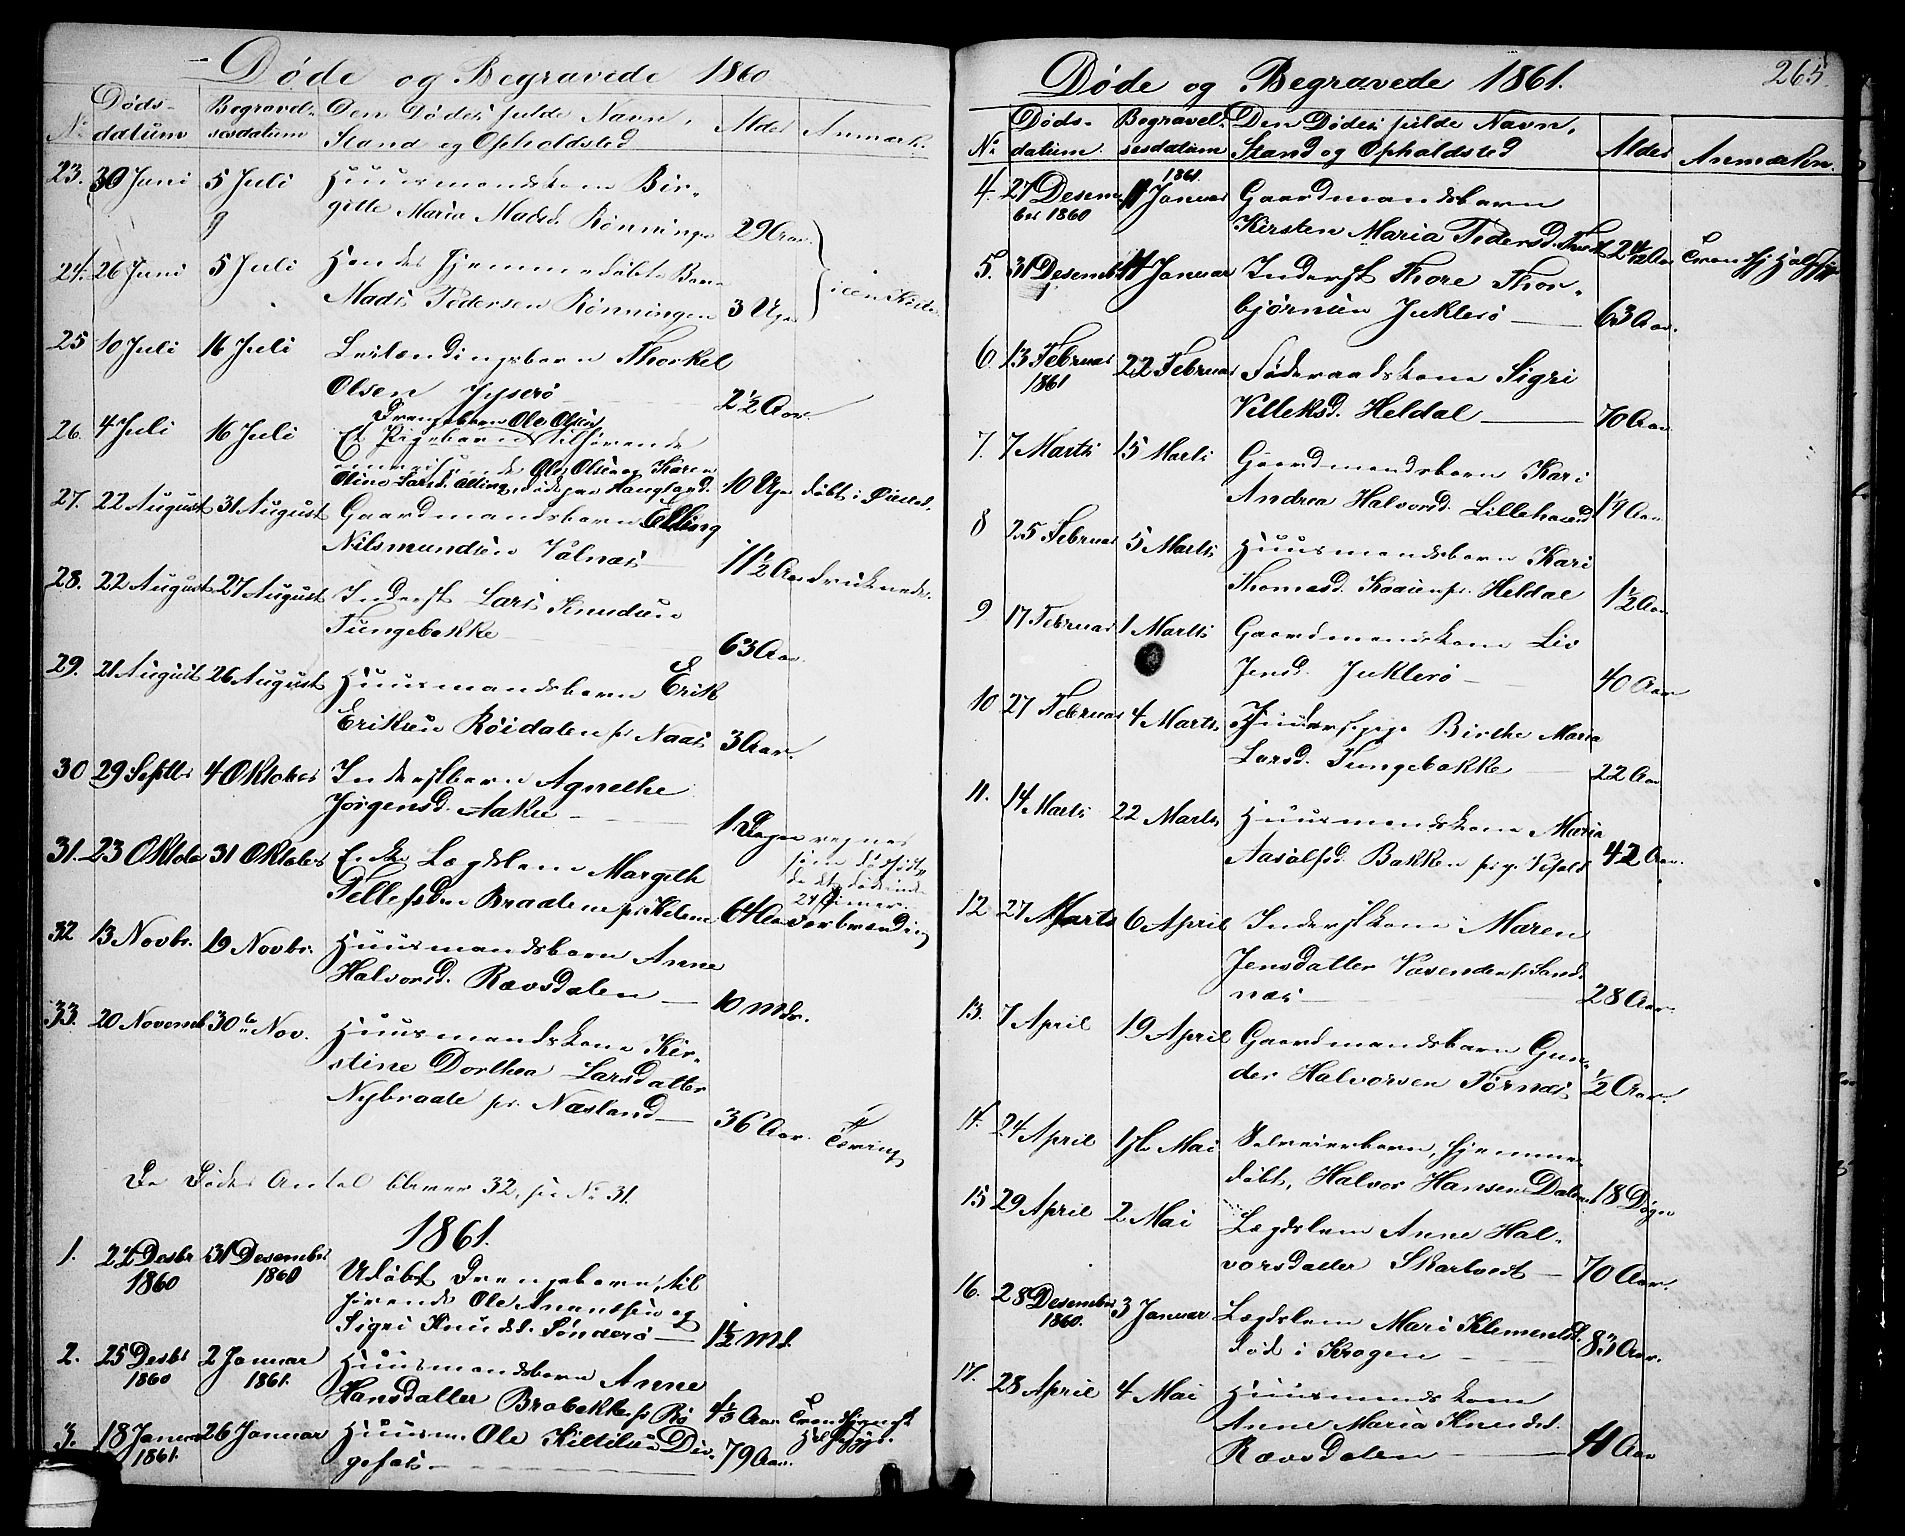 Døde og Begravede 1860
No Døds- datum Begravel- sesdatum Den Dødes fulde Navn, Stand og Opholdsted Alder Anmærk.
23. 30 Juni 5 Juli Huusmandskone Bir-
gitte Maria Madsd. Rönningen 29 Aar
24. 26 Juni 5 Juli Hendes hjemmedøbte Barn
Mads Pedersen Rönningen 3 Uger i een Kiste
25 10 Juli 16 Juli Thorkel
Olsen 2½ Aar
26. 4 Juli 16 Juli Drengebarn Ole Olsen
Et Pigebarn tilhørende
Ole Olsen og Karen
Haugland. 10 Uger døbt i
27. 22 August 31 August Gaardmandsbarn Elling
Nilsmundsen Valnæs 11½ Aar druknede.
28. 22 August 27 August Inderst Lars Knudsen
Tungebakke 63 Aar.
29. 21 August 26 August Huusmandsbarn Erik
Eriksen Röidalen pr. Naas 3 Aar.
30 29 Septbr 4 Oktober Inderstbarn Agnethe
Jörgensd. Aakre 1 Dag regnes
som dødfødt
da det døde inden
24 Timer.
31. 23 Oktob 31 Oktober Enke Lægdslem Margith
Tellefsdtr Braatene pr. Helene 64 Aar forbrænding
32 13 Novbr. 19 Novbr. Huusmandsbarn Anne
Halvorsd. Rævsdalen 10 Mdr.
33. 20 Novemb 30te Nov. Huusmandskone Kir-
stine Dorthea Larsdatter
Nybraate pr. Næsland 36 Aar. Tæring
De Dødes Antal bliver 32, se No 31.
1861.
1. 22 Desbr 1860 31 Desember 1860 Udøbt Drengebarn, til
hørende Ole Knudsen og
Sigri Knudsd. Sönderö 1½ Md.
2. 25 Desbr 1860 2 Januar 1861. Huusmandsbarn Anne
Hansdatter Brobakke pr. Bö 4½ Aar
3. 18 Januar 1861. 26 Januar Huusm. Ole Kittilsen Div-
gefals 79 Aar.
Døde og Begravede 1861. 265
No Døds- datum. Begravel- sesdatum Den Dødes fulde Navn, Stand og Opholdsted Alder Anmærkn.
4. 27 Desem- ber 1860 11 Januar 1861 Gaardmandsbarn
Kirsten Maria Pedersd. 2 4/12 Aar
5. 31 Desemb 11 Januar Inderst Thore Thor-
björnsen Jukleró 63 Aar.
6. 13 Februar 1861 22 Februar Föderaadskone Sigri
Villeksd. Heldal 70 Aar
7. 7 Marts 15 Marts Gaardmandsbarn Kari
Andrea Halvorsd. 1¼ Aar
8 25 Februar 5 Marts Huusmandsbarn Kari
Thomasd. pr. Heldal 1½ Aar
9 17 Februar 1 Marts Gaardmandskone Liv
Jensd. Jukleró 40 Aar
10 27 Februar 4 Marts Birthe Maria
Larsd. Tungebakke 22 Aar
11. 14 Marts 22 Marts Huusmandskone Maria
Aasolfsd. Bakken 42 Aar.
12 27 Marts 6 April Inderstkone Maren
Jensdatter Vasenden pr. Sand-
næs 28 Aar.
13. 7 April 19 April Gaardmandsbarn Gun-
der Halvorsen Törnes ½ Aar.
14. 24 April 17de Mai Selveierbarn, hjemme-
døbt, Halvor Hansen Dalen 18 Døgn
15 29 April 2 Mai Lægdslem Anne Hal-
vorsdatter Skartvedt 70 Aar.
16. 28 Desember 1860. 3 Januar Lægdslem Mari Klemetsd.
død i Krogen 83 Aar.
17. 28 April 4 Mai Huusmandskone
Anne Maria Knudsd.
Rævsdalen 41 Aar